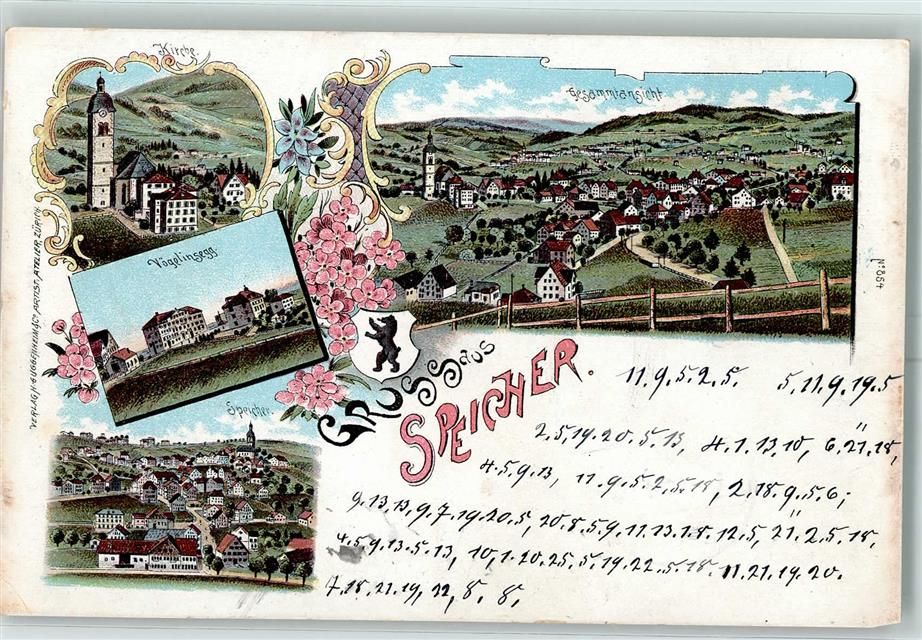 Kirche.
Gesammtansicht
Vögelinsegg
Speicher.
VERLAG H. GUGGENHEIM & Co. ARTIST. ATELIER, ZÜRICH
No 854
GRUSS aus
SPEICHER.
11.9.5.2.5. 5.11.9.19.5
2.5.19.20.5.13, 4.1.13.10, 6.21.18,
4.5.9.13, 11.9.5.2.5.18, 2.18.9.5.6;
9.13.13.9.7.19.20.5, 20.8.5.9.11.13.1.8.12.5, 21.2.5.18,
4.5.9.13.5.13, 10.1.20.25.5.19.22.5.18. 11.21.19.20.
7.18.21.19, 22, 8. 8,